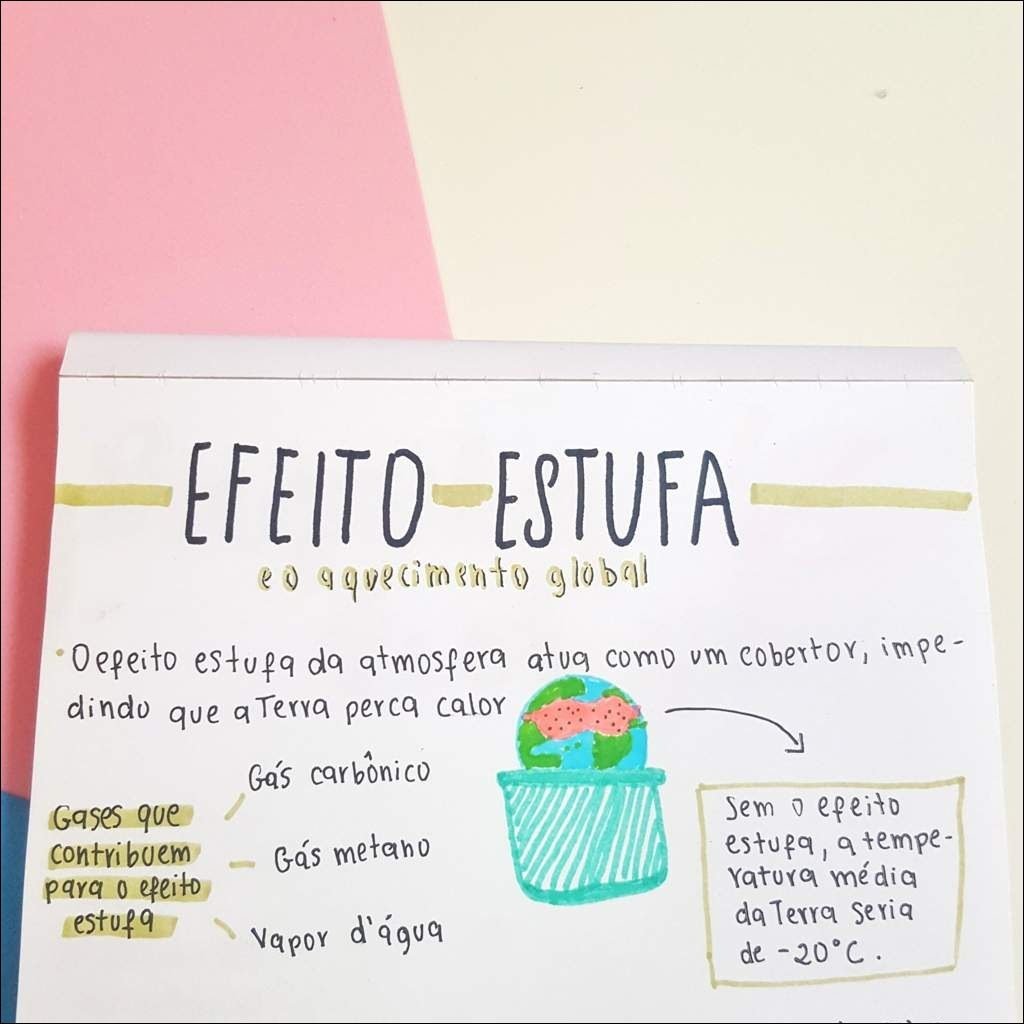 EFEITO-ESTUFA
e o aquecimento global
O efeito estufa da atmosfera atua como um cobertor, impe-
dindo que a Terra perca calor
Gases que
contribuem
para o efeito
estufa
Gás carbônico
Gás metano
Vapor d'água
Sem o efeito
estufa, a tempe-
ratura média
da Terra seria
de -20°C.